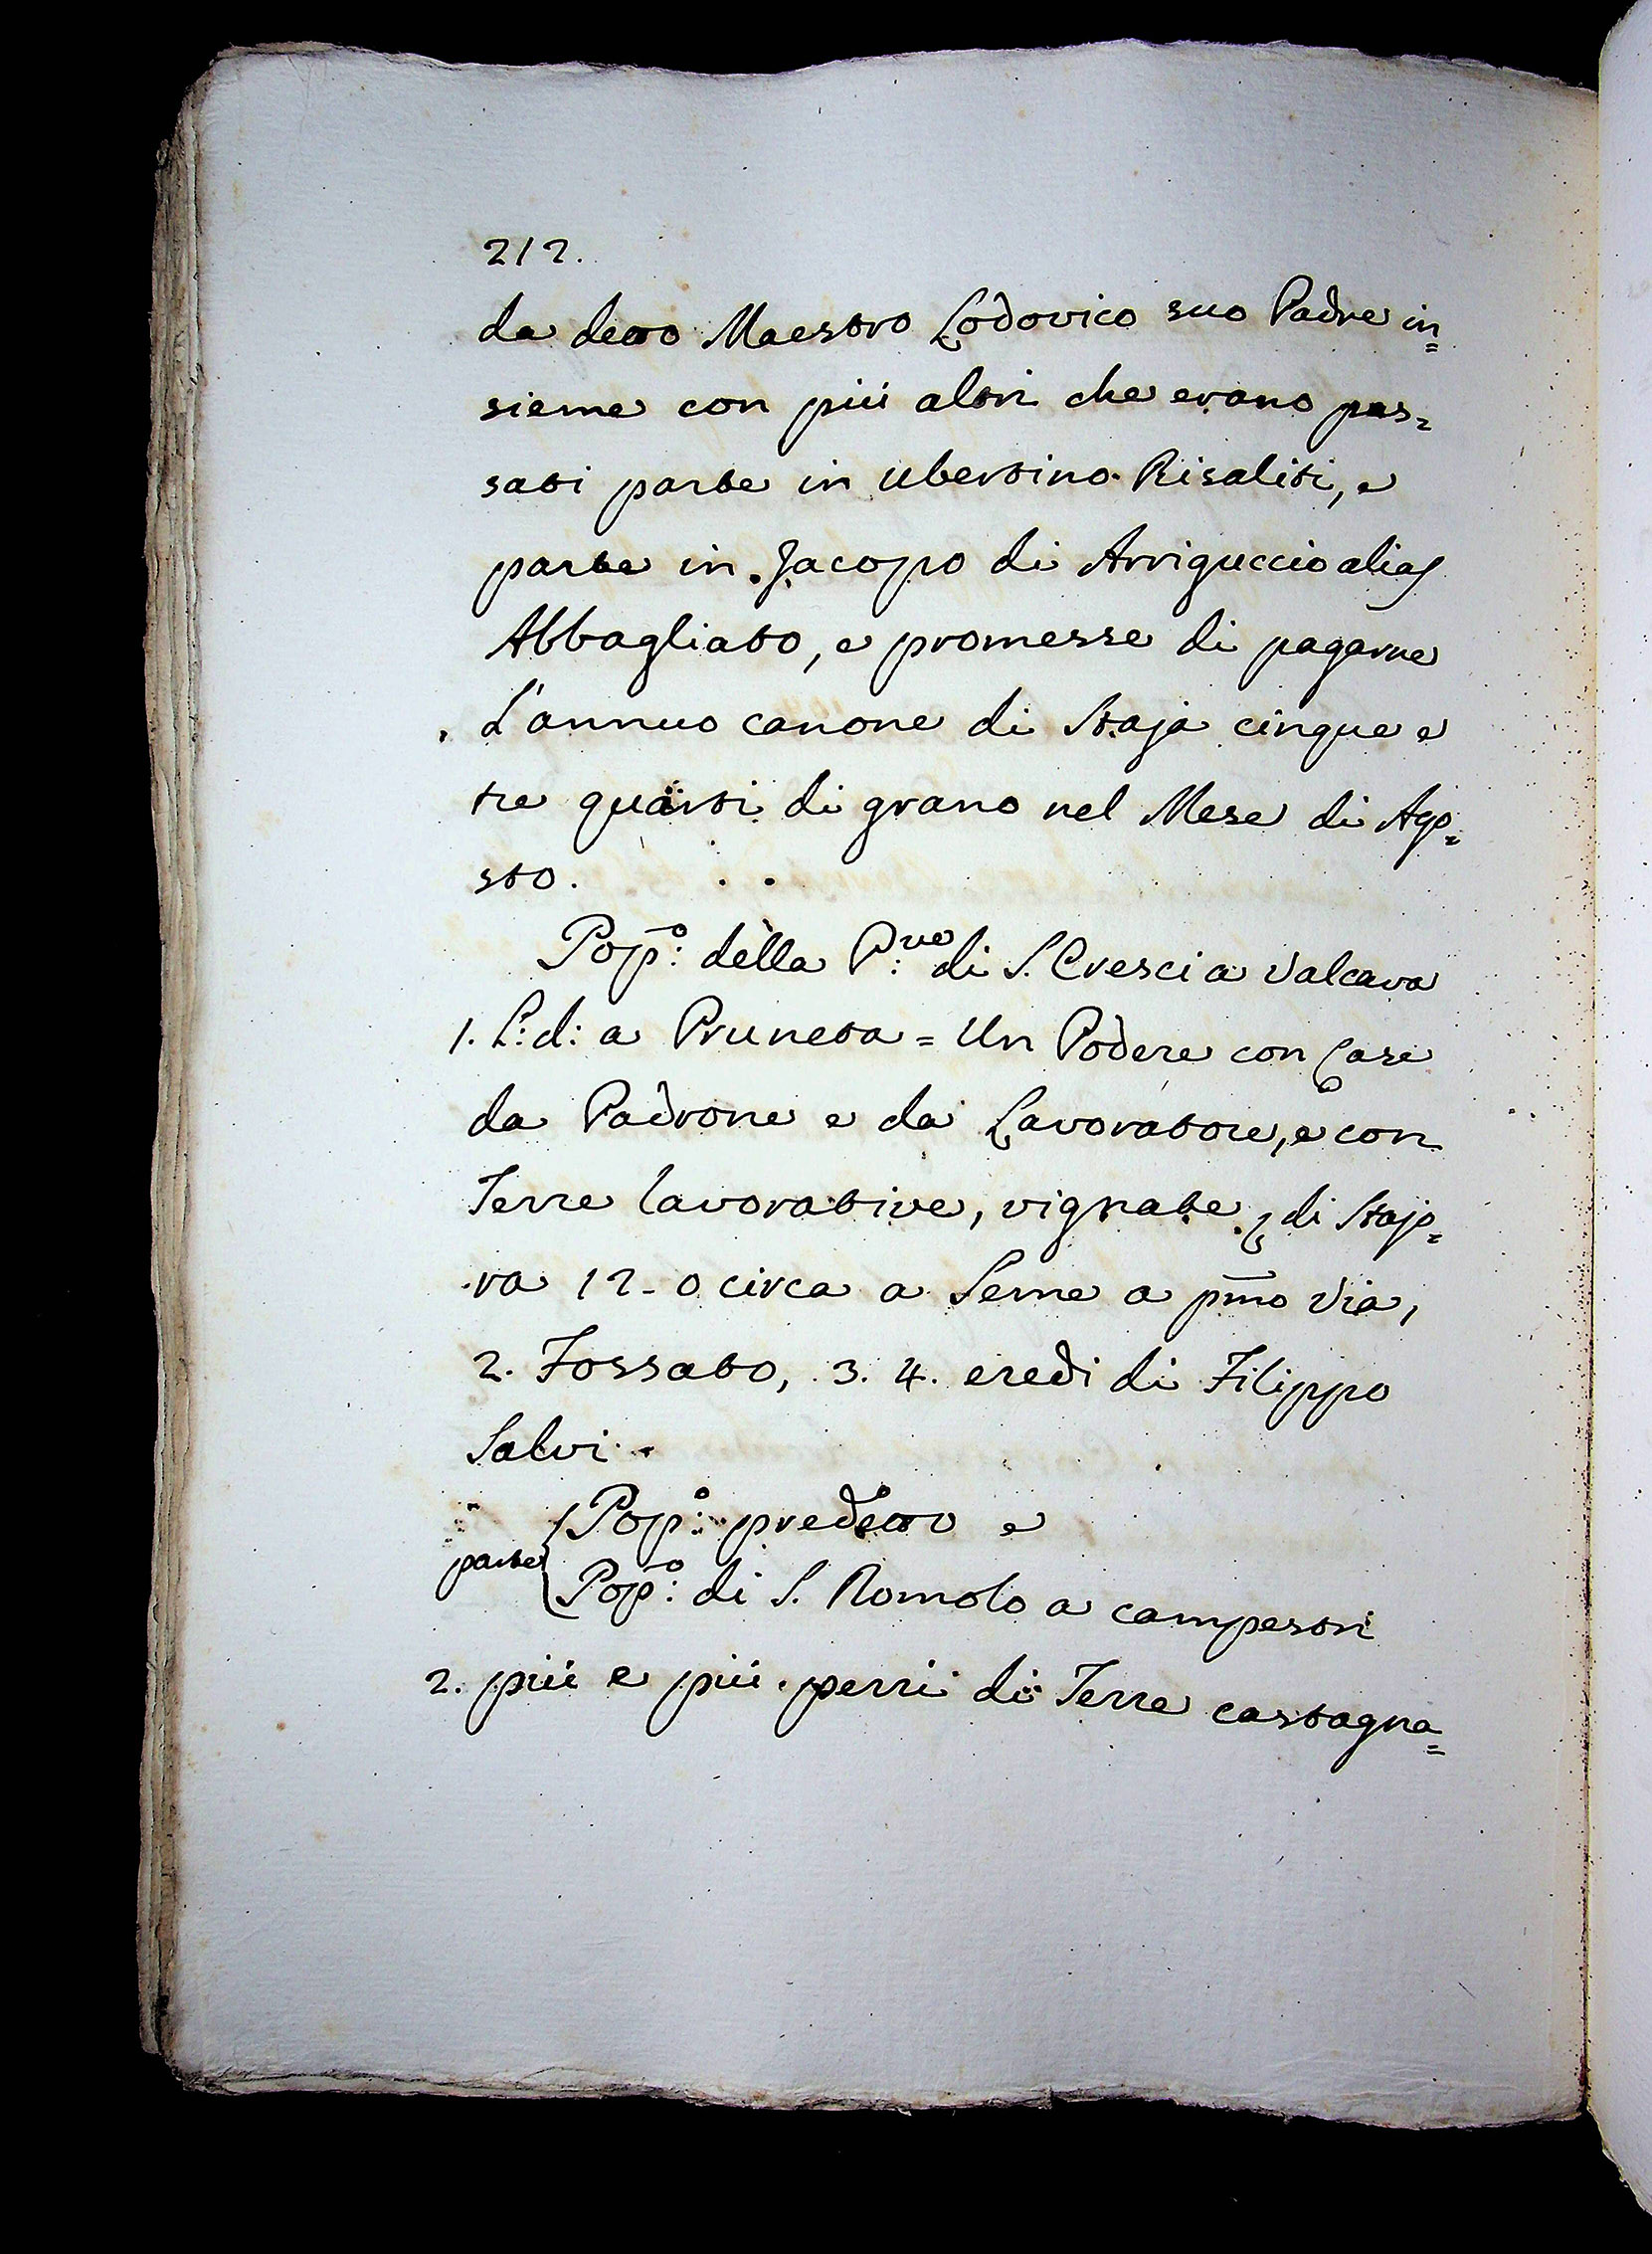 212.
da detto Maestro Lodovico suo Padre in=
sieme con più altri che erano pas=
sati parte in Ubertino Risaliti, e
parte in Jacopo di Arriguccio alias
Abbagliato, e promesse di pagarne
L'annuo canone di Staja cinque e
tre quarti di grano nel Mese di Ago=
sto.
Pop:º della P:ve di S. Cresci a Valcava
1. L:d: a Pruneta = Un Podere con Case
da Padrone e da Lavoratore, e con
Terre lavorative, vignate di Stajo=
ra 12-0 circa a Seme a pmo Via,
2. Fossato, 3. 4. eredi di Filippo
Salvi.
Pop:º predetto e
parte
Pop:º di S. Romolo a campestri
2. più e più pezzi di Terre castagna=